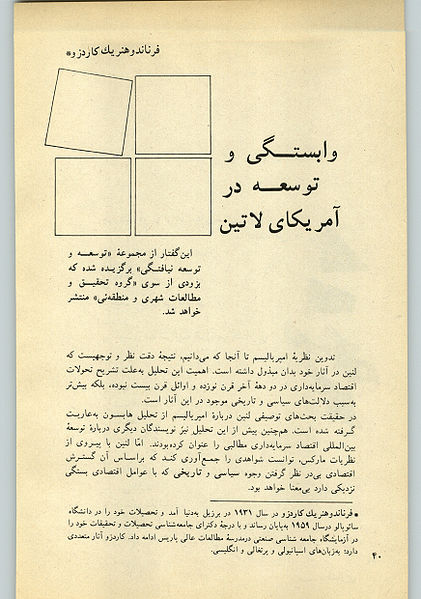 فرناندو هنریك کاردزو*
وابستگی و
توسعه در
آمریکای لاتین
این‌گفتار از مجموعهٔ «توسعه و
توسعه نیافتگی» برگزیده شده که
بزودی از سری «گروه تحقیق و
مطالعات شهری و منطقه‌ئی» منتشر
خواهد شد.
تدوین نظریهٔ امپریالیسم تا آنجا که می‌دانیم، نتیجهٔ دقت نظر و توجهیست که
لنین در آثار خود بدان مبذول داشته است. اهمیت این تحلیل به‌علت تشریح تحولات
اقتصاد سرمایه‌داری در دو دههٔ آخر قرن نوزده و اوائل قرن بیست نبوده، بلکه بیش‌تر
به‌سبب دلالت‌های سیاسی و تاریخی موجود در این آثار است.
در حقیقت بحث‌های توصیفی لنین دربارهٔ امپریالیسم از تحلیل هابسون به‌عاریت
گرفته شده است. هم‌چنین پیش از این تحلیل نیز نویسندگان دیگری دربارهٔ توسعهٔ
بین‌المللی اقتصاد سرمایه‌داری مطالبی را عنوان کرده‌بودند. امّا لنین با پیروی از
نظریات مارکس، توانست شواهدی را جمع‌آوری کند که براساس آن گسترش
اقتصادی بی‌در نظر گرفتن وجوه سیاسی و تاریخی که با عوامل اقتصادی بستگی
نزدیکی دارد بی‌معنا خواهد بود.
* فرناندو هنریك کاردزو در سال ۱۹۳۱ در برزیل به‌دنیا آمد و تحصیلات خود را در دانشگاه
سائوپالو درسال ۱۹۵۹ به‌پایان رساند و با درجهٔ دکترای جامعه‌شناسی تحصیلات و تحقیقات خود را
در آزمایشگاه جامعه شناسی صنعتی درمدرسهٔ مطالعات عالی پاریس ادامه داد. کاردزو آثار متعددی
دارد؛ به‌زبان‌های اسپانیولی و پرتغالی و انگلیسی.
۴۰